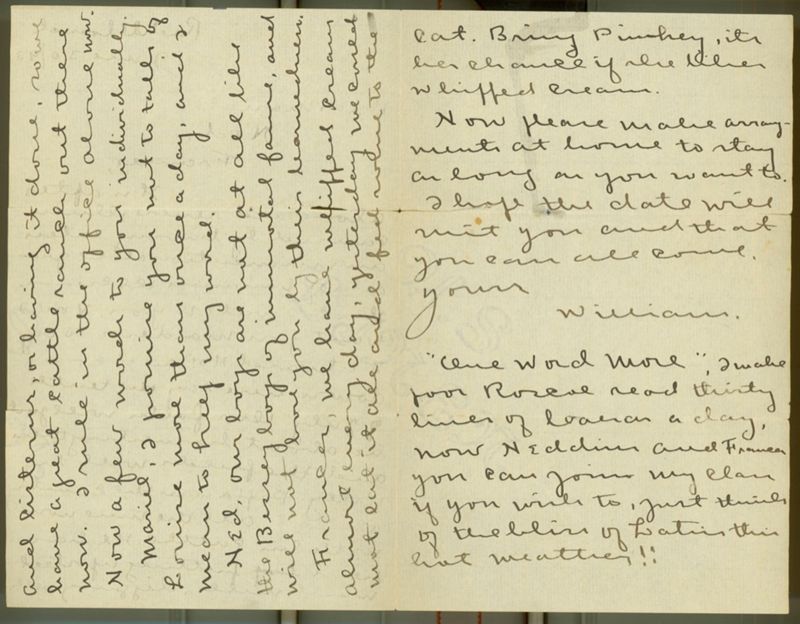 and listens, or having it done, so we
have a great cattle ranch out there
now. I rule in the office alone now.
Now a few words to you individually.
Mariel, I promise you not to talk of
Louise more than once a day, and I
mean to keep my word.
Ned, our boys are not at all like
the Bessey boys of immortal fame, and
will not bore you by their learnedness.
Frances, we have whipped cream
almost every day, yesterday we could
not eat it all and fed some to the
cat. Bring Pinkey, its
her chance if she likes
whipped cream.
Now please make arrang-
ments at home to stay
as long as you want to.
I hope the date will
suit you and that
you can all come.
Yours
William.
"One Word More", I make
poor Roscoe read thirty
lines of Caesar a day,
now Neddins and Frances
you can join my class
if you wish to, just think
of the bliss of Latin this
hot weather!!